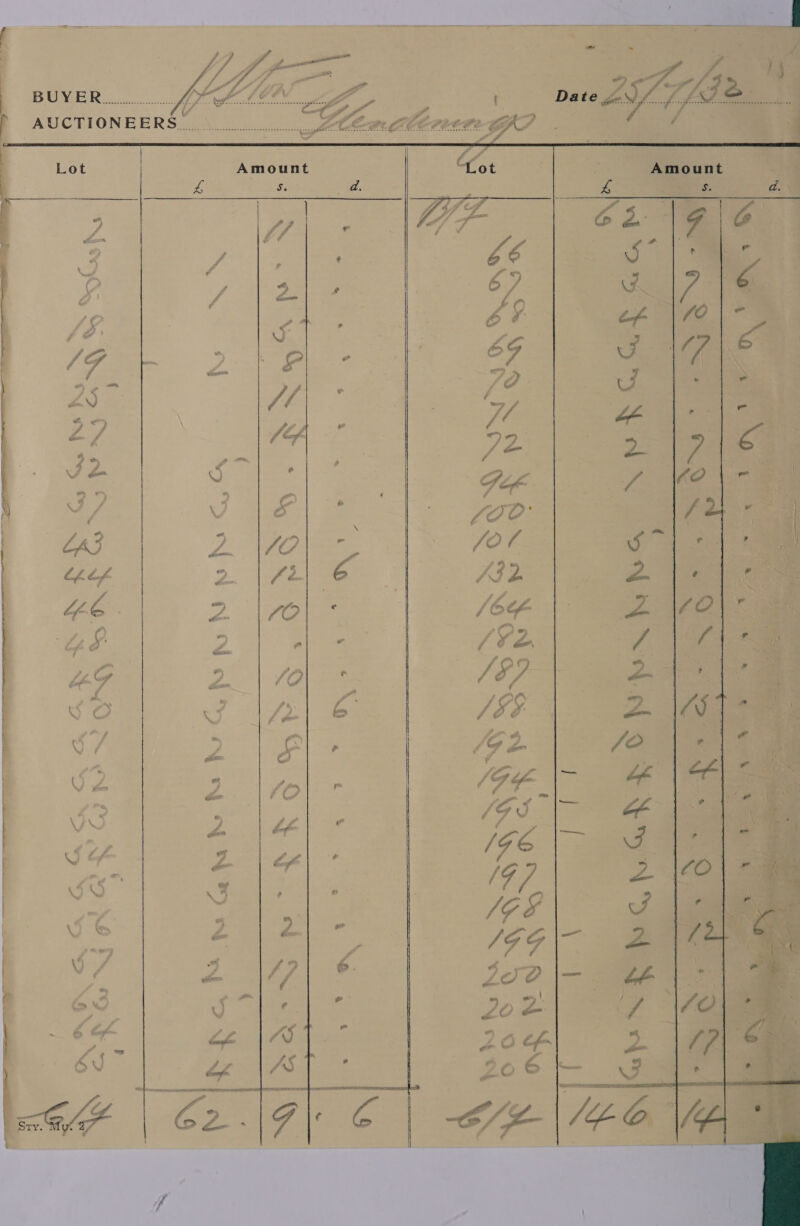 BUYER Date 25/7/32
AUCTIONEERS Glendining
Lot Amount Lot Amount
£ s. d. £ s. d.
2 11 - B/F 62 9 6
3 1 - - 66 5 - -
8 1 2 - 67 3 7 6
18 5 - 68 4 10 -
19 - 2 8 - 69 3 17 6
25 11 - 70 3 - -
27 14 - 71 4 - -
32 5 - - 72 2 7 6
37 3 8 - 94 1 10 -
43 2 10 - 100 12 -
44 2 12 6 101 5 - -
46 2 10 - 132 2 - -
48 2 - - 164 2 10 -
49 2 10 - 182 1 1 -
50 3 12 6 187 2 - -
51 2 8 - 188 2 15 -
52 2 10 - 192 10 - -
53 2 4 - 194 - 4 4 -
54 2 4 - 195 - 4 - -
55 3 - - 196 - 3 - -
56 2 2 - 197 2 10 -
57 2 17 6 198 3 - -
63 5 - - 199 - 2 12 6
64 4 15 - 200 - 4 - -
65 4 15 - 202 1 10 -
204 2 17 6
206 - 3 - -
C/F 62 . 9 . 6 C/F 146 14 -